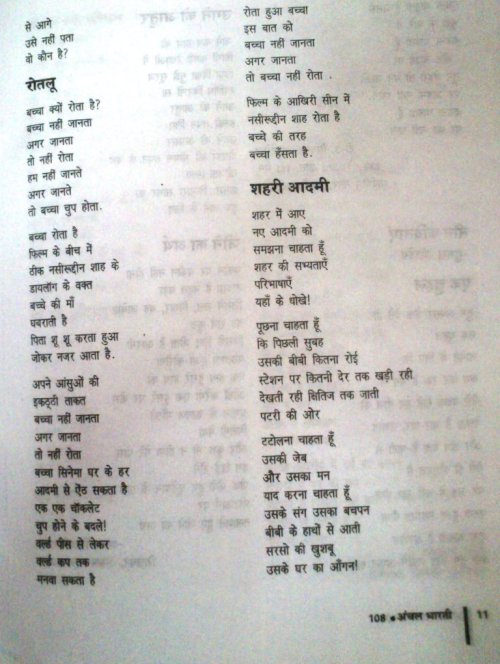 से आगे
उसे नहीं पता
वो कौन है?
रोतलू
बच्चा क्यों रोता है?
बच्चा नहीं जानता
अगर जानता
तो नहीं रोता
हम नहीं जानते
अगर जानते
तो बच्चा चुप होता.
बच्चा रोता है
फिल्म के बीच में
ठीक नसीरूद्दीन शाह के
डायलॉग के वक्त
बच्चे की माँ
घबराती है
पिता शू शू करता हुआ
जोकर नजर आता है.
अपने आंसुओं की
इकट्ठी ताकत
बच्चा नहीं जानता
अगर जानता
तो नहीं रोता
बच्चा सिनेमा घर के हर
आदमी से ऐंठ सकता है
एक एक चॉकलेट
चुप होने के बदले!
वर्ल्ड पीस से लेकर
वर्ल्ड कप तक
मनवा सकता है
रोता हुआ बच्चा
इस बात को
बच्चा नहीं जानता
अगर जानता
तो बच्चा नहीं रोता .
फिल्म के आखिरी सीन में
नसीरूद्दीन शाह रोता है
बच्चे की तरह
बच्चा हँसता है.
शहरी आदमी
शहर में आए
नए आदमी को
समझना चाहता हूँ
शहर की सभ्यताएँ
परिभाषाएँ
यहाँ के धोखे!
पूछना चाहता हूँ
कि पिछली सुबह
उसकी बीबी कितना रोई
स्टेशन पर कितनी देर तक खड़ी रही
देखती रही क्षितिज तक जाती
पटरी की ओर
टटोलना चाहता हूँ
उसकी जेब
और उसका मन
याद करना चाहता हूँ
उसके संग उसका बचपन
बीबी के हाथों से आती
सरसो की खुशबू
उसके घर का आँगन!
108 • अंचल भारती
11